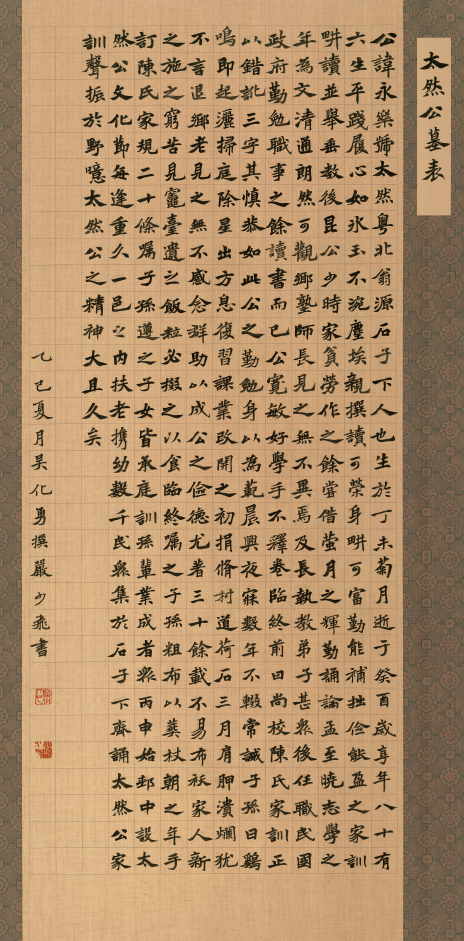 太然公墓表
公諱永樂號太然粤北翁源石子下人也生於丁未菊月逝于癸酉歲享年八十有
六生平踐履心如冰玉不涴塵埃親撰讀可榮身畊可富勤能補拙儉能盈之家訓
畊讀並舉垂教後昆公少時家貧勞作之餘嘗借螢月之輝勤誦論孟至曉志學之
年為文清通朗然可觀鄉塾師長見之無不異焉及長執教弟子甚衆後任職民國
政府勤勉職事之餘讀書而已公寬敏好學手不釋卷臨終前日尚校陳氏家訓正
以錯訛三字其慎恭如此公之勤勉身以為範晨興夜寐數年不輟常誡子孫曰鷄
鳴即起灑掃庭除星出方息復習課業改開之初捐脩村道荷石三月肩胛潰爛猶
不言退鄉老見之無不感念群助以成公之儉德尤著三十餘載不易布袄家人新
之施之窮苦見竈臺遺之飯粒必掇之以食臨終嘱之子孫粗布以葬杖朝之年手
訂陳氏家規二十條嘱子孫遵之子女皆承庭訓孫輩業成者衆丙申始邨中設太
然公文化節每逢重久一邑之内扶老携幼數千民衆集於石子下齋誦太然公家
訓聲振於野噫太然公之精神大且久矣
乙巳夏月吴化勇撰嚴少飛書